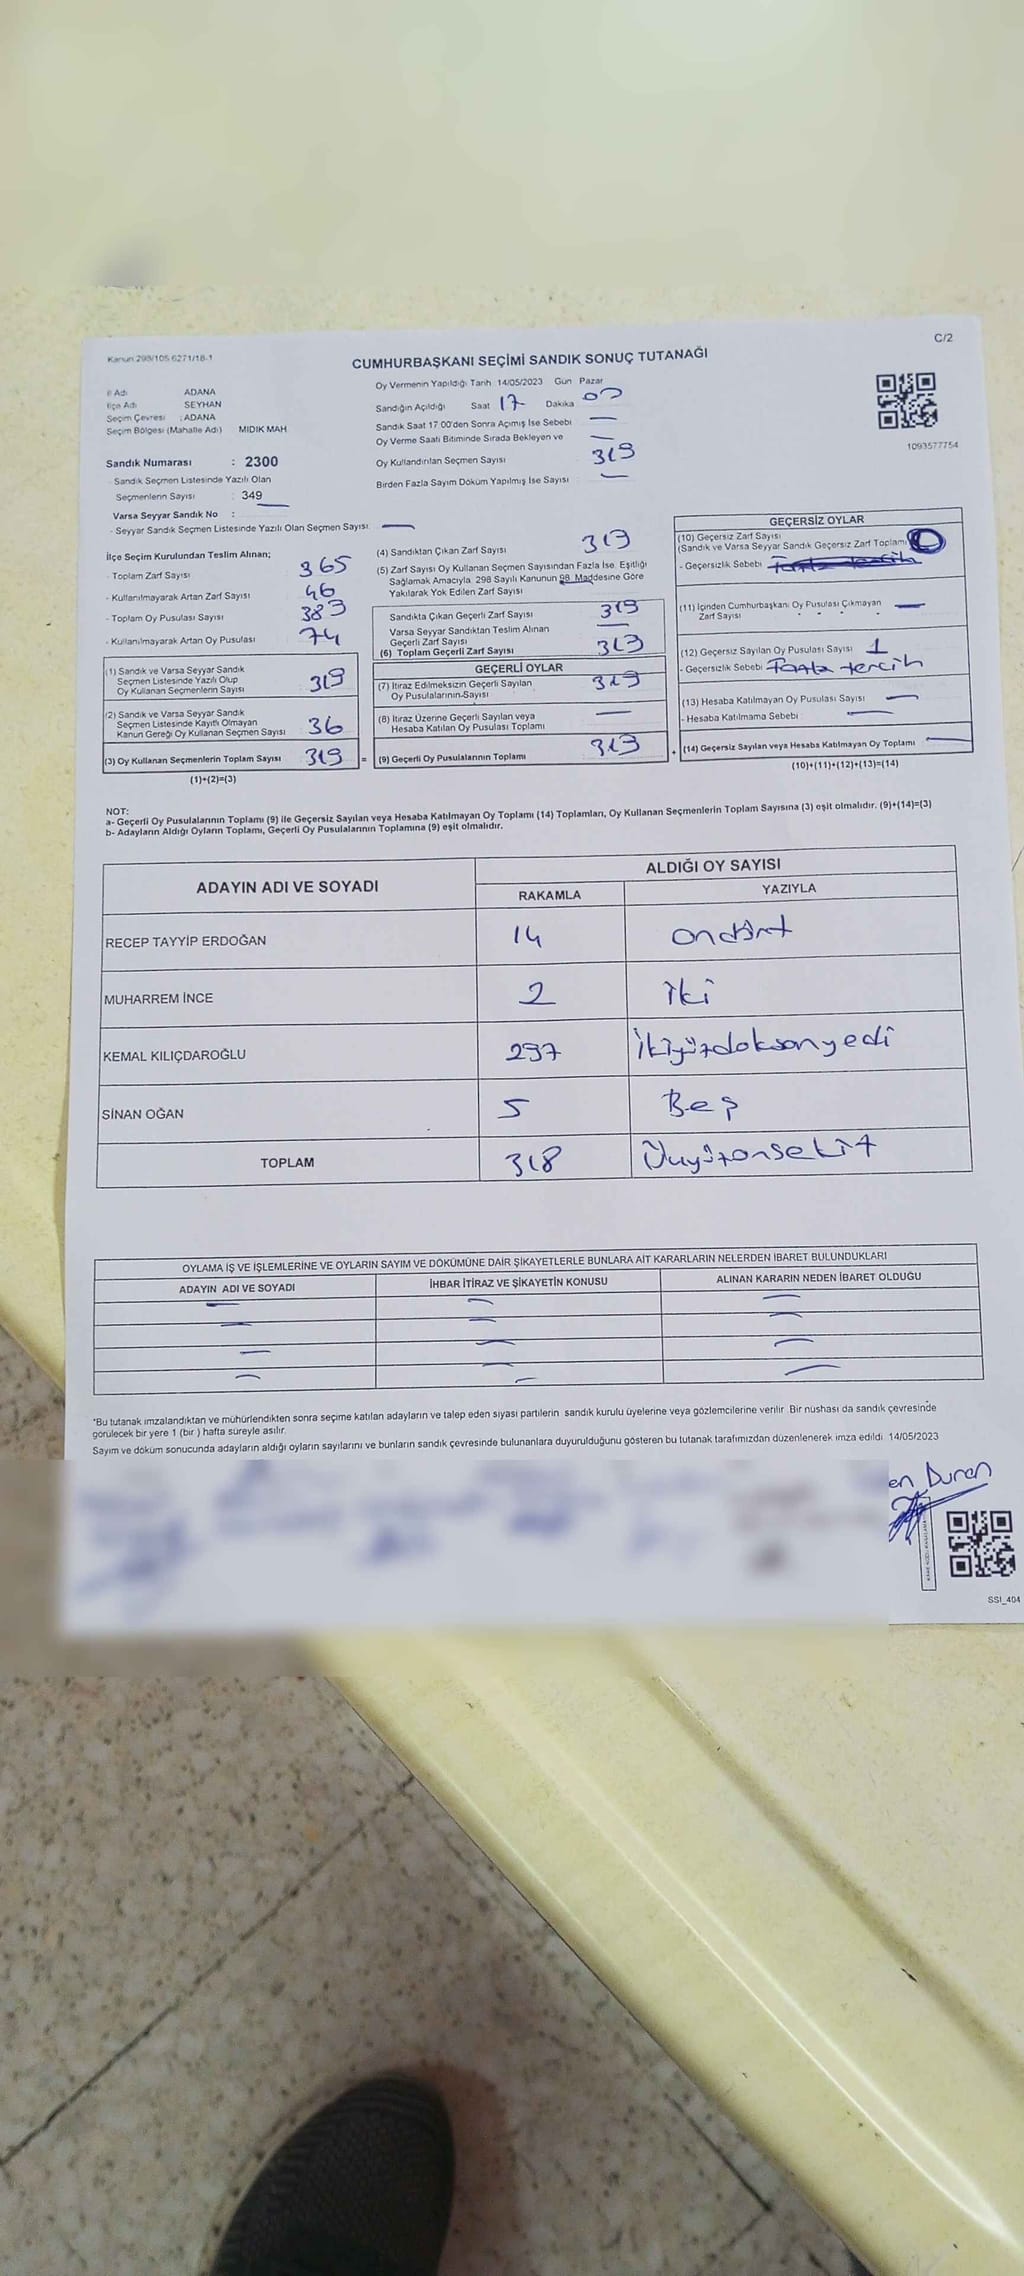 Kanun 298/105 6271/18-1
C/2
CUMHURBAŞKANI SEÇİMİ SANDIK SONUÇ TUTANAĞI
İl Adı ADANA
İlçe Adı SEYHAN
Seçim Çevresi : ADANA
Seçim Bölgesi (Mahalle Adı) MIDIK MAH.
Sandık Numarası : 2300
Sandık Seçmen Listesinde Yazılı Olan
Seçmenlerin Sayısı : 349
Varsa Seyyar Sandık No :
- Seyyar Sandık Seçmen Listesinde Yazılı Olan Seçmen Sayısı: —
Oy Vermenin Yapıldığı Tarih 14/05/2023 Gün Pazar
Sandığın Açıldığı Saat 17 Dakika 00
Sandık Saat 17 00'den Sonra Açımış İse Sebebi —
Oy Verme Saati Bitiminde Sırada Bekleyen ve —
Oy Kullandırılan Seçmen Sayısı 319
Birden Fazla Sayım Döküm Yapılmış İse Sayısı —
1093577754
İlçe Seçim Kurulundan Teslim Alınan;
- Toplam Zarf Sayısı 365
- Kullanılmayarak Artan Zarf Sayısı 46
- Toplam Oy Pusulası Sayısı 383
- Kullanılmayarak Artan Oy Pusulası 74
(1) Sandık ve Varsa Seyyar Sandık
Seçmen Listesinde Yazılı Olup
Oy Kullanan Seçmenlerin Sayısı 319
(2) Sandık ve Varsa Seyyar Sandık
Seçmen Listesinde Kayıtlı Olmayan
Kanun Gereği Oy Kullanan Seçmen Sayısı 36
(3) Oy Kullanan Seçmenlerin Toplam Sayısı 319 =
(1)+(2)=(3)
(4) Sandıktan Çıkan Zarf Sayısı 319
(5) Zarf Sayısı Oy Kullanan Seçmen Sayısından Fazla İse. Eşitliği
Sağlamak Amacıyla 298 Sayılı Kanunun 98. Maddesine Göre
Yakılarak Yok Edilen Zarf Sayısı —
Sandıkta Çıkan Geçerli Zarf Sayısı 319
Varsa Seyyar Sandıktan Teslim Alınan
Geçerli Zarf Sayısı —
(6) Toplam Geçerli Zarf Sayısı 319
GEÇERLİ OYLAR
(7) İtiraz Edilmeksizin Geçerli Sayılan
Oy Pusulalarının Sayısı 319
(8) İtiraz Üzerine Geçerli Sayılan veya
Hesaba Katılan Oy Pusulası Toplamı —
(9) Geçerli Oy Pusulalarının Toplamı 319 +
GEÇERSİZ OYLAR
(10) Geçersiz Zarf Sayısı
(Sandık ve Varsa Seyyar Sandık Geçersiz Zarf Toplamı)
- Geçersizlik Sebebi Fazla tercih
(11) İçinden Cumhurbaşkanı Oy Pusulası Çıkmayan
Zarf Sayısı —
(12) Geçersiz Sayılan Oy Pusulası Sayısı 1
- Geçersizlik Sebebi Fazla tercih
(13) Hesaba Katılmayan Oy Pusulası Sayısı —
- Hesaba Katılmama Sebebi —
(14) Geçersiz Sayılan veya Hesaba Katılmayan Oy Toplamı —
(10)+(11)+(12)+(13)=(14)
NOT:
a- Geçerli Oy Pusulalarının Toplamı (9) ile Geçersiz Sayılan veya Hesaba Katılmayan Oy Toplamı (14) Toplamları, Oy Kullanan Seçmenlerin Toplam Sayısına (3) eşit olmalıdır. (9)+(14)=(3)
b- Adayların Aldığı Oyların Toplamı, Geçerli Oy Pusulalarının Toplamına (9) eşit olmalıdır.
ADAYIN ADI VE SOYADI ALDIĞI OY SAYISI
RAKAMLA YAZIYLA
RECEP TAYYİP ERDOĞAN 14 ondört
MUHARREM İNCE 2 iki
KEMAL KILIÇDAROĞLU 297 ikiyüzdoksanyedi
SİNAN OĞAN 5 Beş
TOPLAM 318 Üçyüzonsekiz
OYLAMA İŞ VE İŞLEMLERİNE VE OYLARIN SAYIM VE DÖKÜMÜNE DAİR ŞİKAYETLERLE BUNLARA AİT KARARLARIN NELERDEN İBARET BULUNDUKLARI
ADAYIN ADI VE SOYADI İHBAR İTİRAZ VE ŞİKAYETİN KONUSU ALINAN KARARIN NEDEN İBARET OLDUĞU
*Bu tutanak imzalandıktan ve mühürlendikten sonra seçime katılan adayların ve talep eden siyasi partilerin sandık kurulu üyelerine veya gözlemcilerine verilir. Bir nüshası da sandık çevresinde
görülecek bir yere 1 (bir ) hafta süreyle asılır.
Sayım ve döküm sonucunda adayların aldığı oyların sayılarını ve bunların sandık çevresinde bulunanlara duyurulduğunu gösteren bu tutanak tarafımızdan düzenlenerek imza edildi 14/05/2023
en Duran
SSI_404